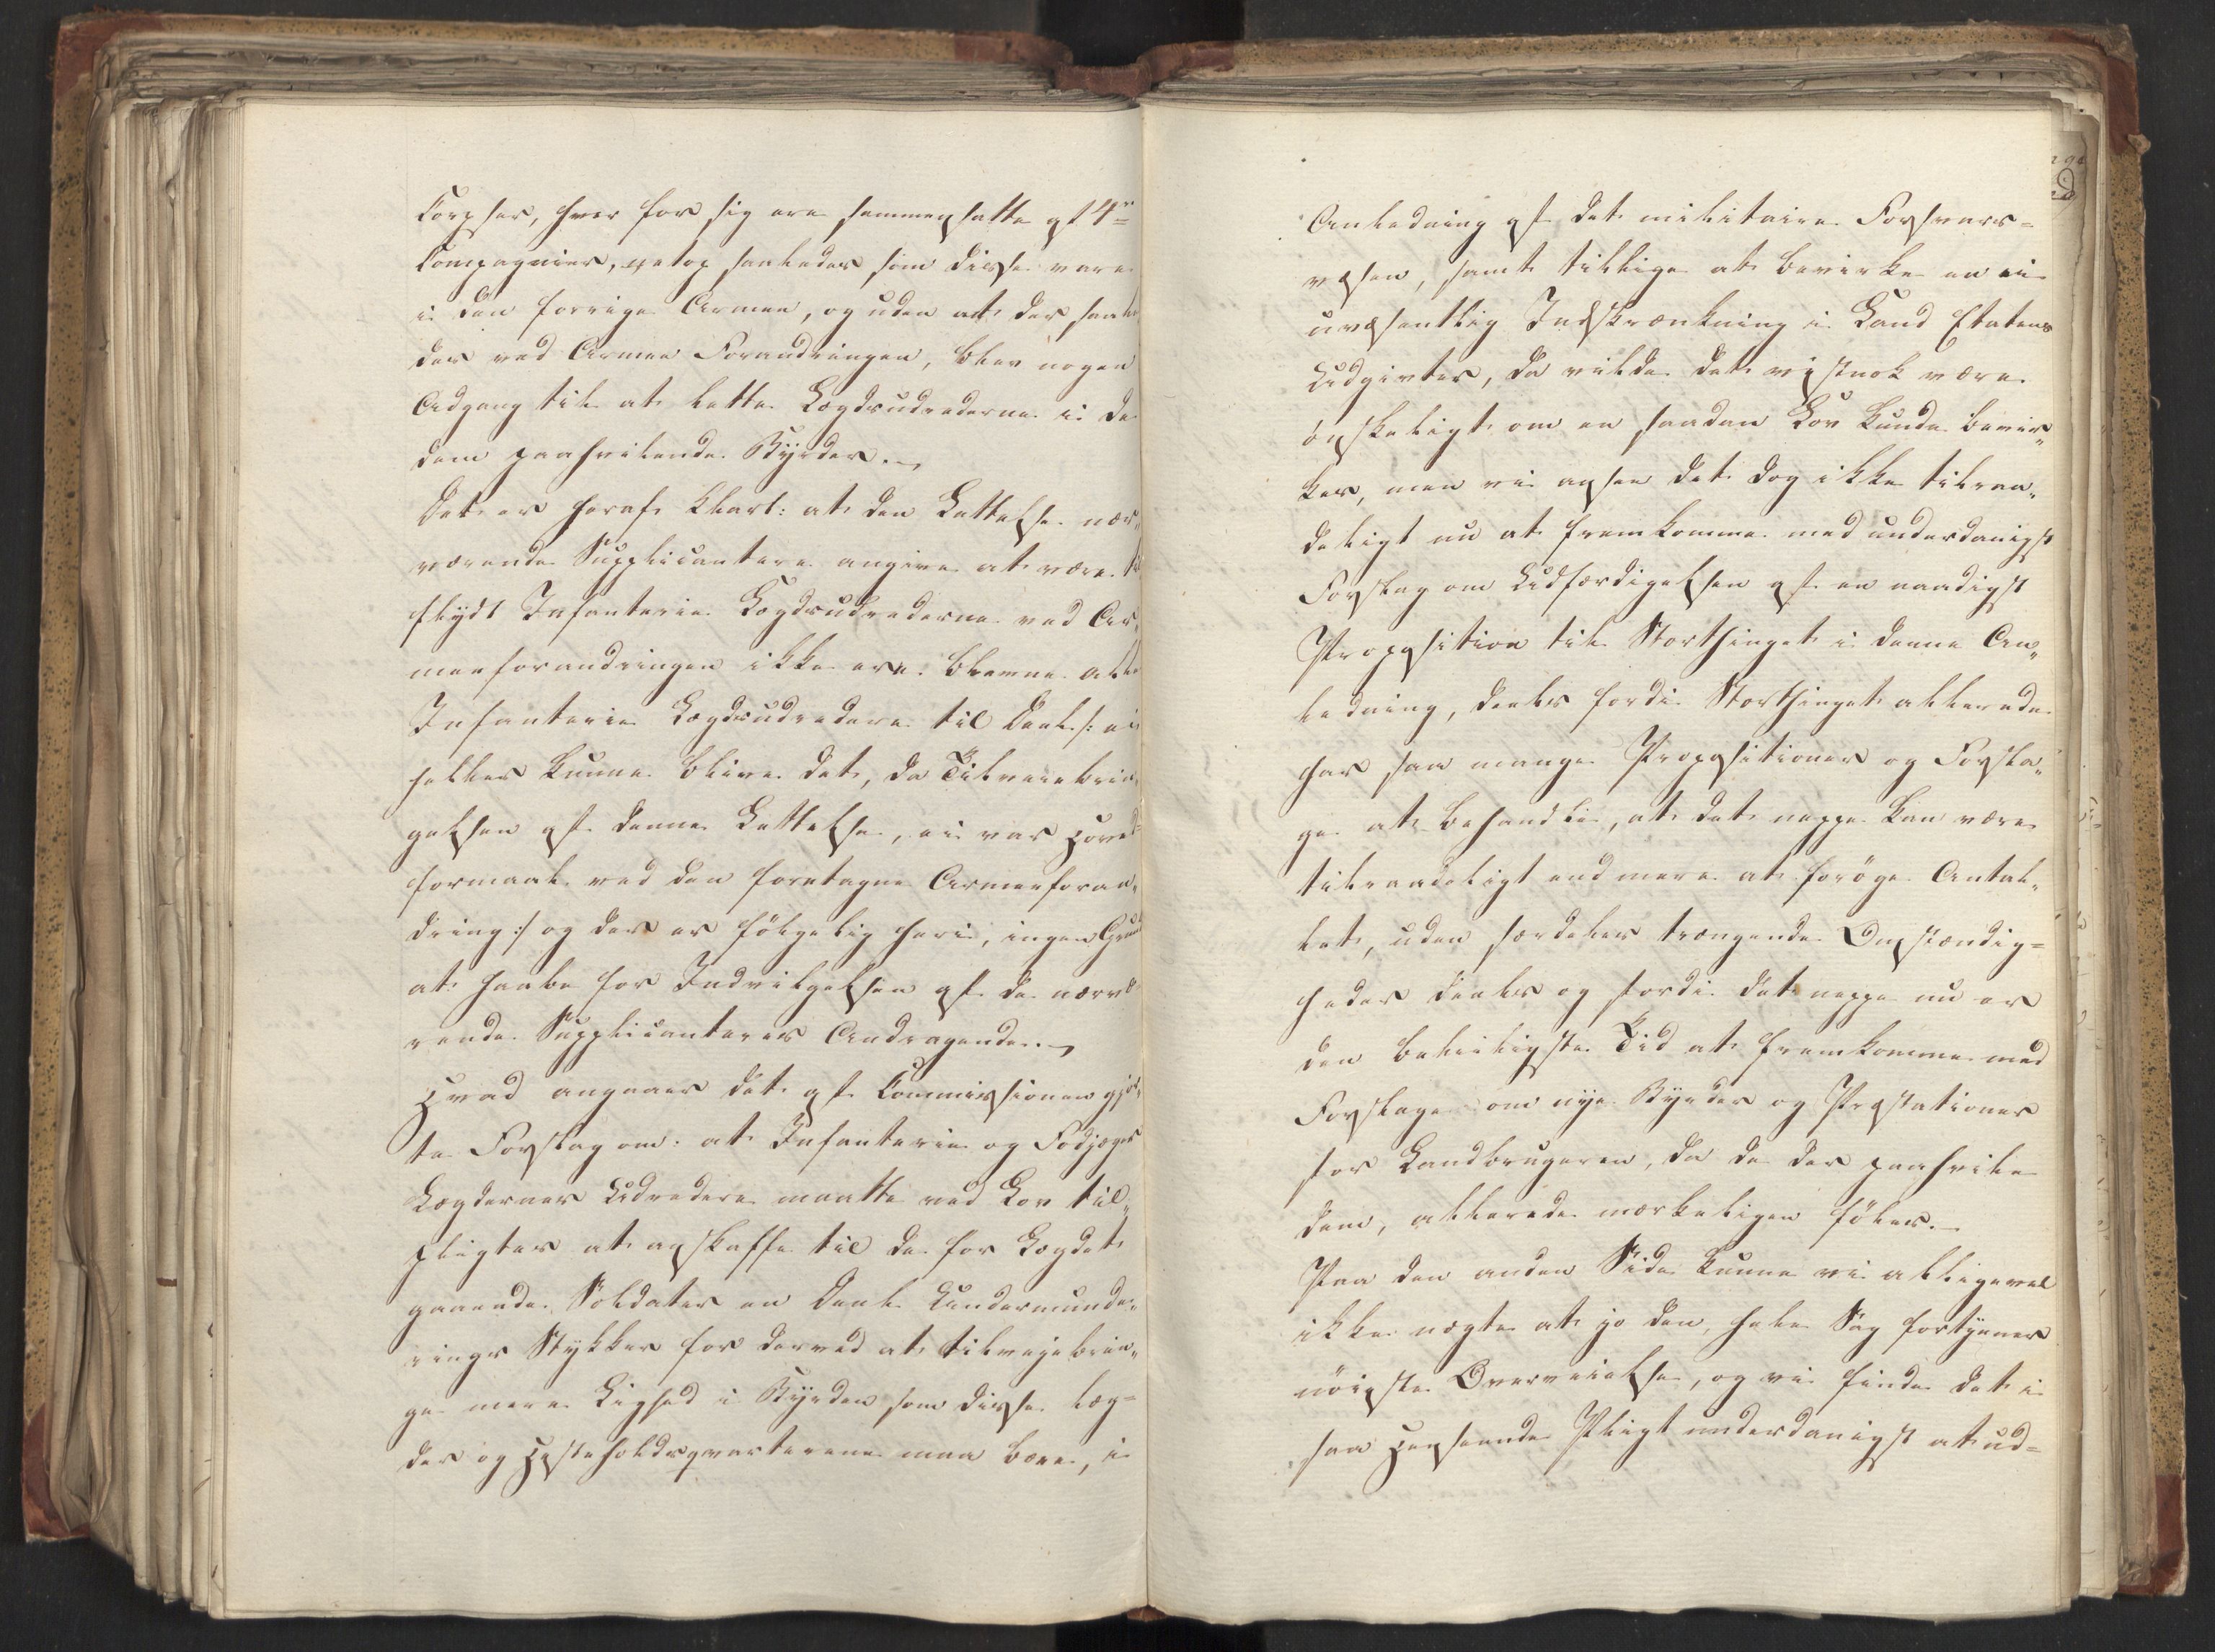 Corpser, hver for sig ere sammensatte af 4re
Compagnier, netop saaledes som disse vare
i den forrige Armee, og uden at der saale¬
des ved Armee Forandringen, blev nogen
Adgang til at lette Lægdsudrederne i de
dem paahvilende Byrder._
Det er heraf klart: at den Lettelse nær¬
værende Supplicantere angive at være til¬
flydt Infanterie Lægdsudrederne ved Ar¬
meeforandringen ikke ere blevne alle
Infanterie Lægdsudredere til Deel /: ei
heller kunne blive det, da Tilveiebrin¬
gelsen af denne Lettelse, ei var Hoved¬
formaal ved den foretagne Armeeforan¬
dring :/ og der er følgelig heri, ingen Grund
at haabe for Indvilgelsen af de nærvæ¬
rende Supplicanteres Andragende._
Hvad angaaer det af Commissionen gjor¬
te Forslag om: at Infanterie og Fodjæger
Lægdernes Udredere maatte ved Lov til¬
pligtes at anskaffe til de for Lægdet
gaaende Soldater en Deel Undermunde¬
rings Stykker for derved at tilvejebrin¬
ge mere Lighed i Byrden som disse Læg=
der og Hesteholdsqvartererne maa bære, i
Anledning af det militaire Forsvars=
væsen, samt tillige at bevirke en ei
uvæsentlig Indskrænkning i Land Etatens
Udgivter, da vilde det vistnok være
ønskeligt om en saadan Lov kunde bevir¬
kes, men vi ansee det dog ikke tilraa¬
deligt nu at fremkomme med underdanigst
Forslag om Udfærdigelsen af en naadigst
Proposition til Storthinget i denne An¬
ledning, deels fordi Storthinget allerede
har saa mange Propositioner og Forsla¬
ge at behandle, at det neppe kan være
tilraadeligt end mere at forøge Antal¬
let, uden særdeles trængende Omstændig=
heder deels og fordi det neppe nu er
den beleiligste Tid at fremkomme med
Forslage om nye Byrder og Præstationer
for Landbrugeren, da de der paahvile
dem, allerede mærkeligen føles._
Paa den anden Side kunne vi alligevel
ikke nægte at jo den hele Sag fortjener
nøieste Overveielse, og vi finde det i
saa Henseende Pligt underdanigst at ud=